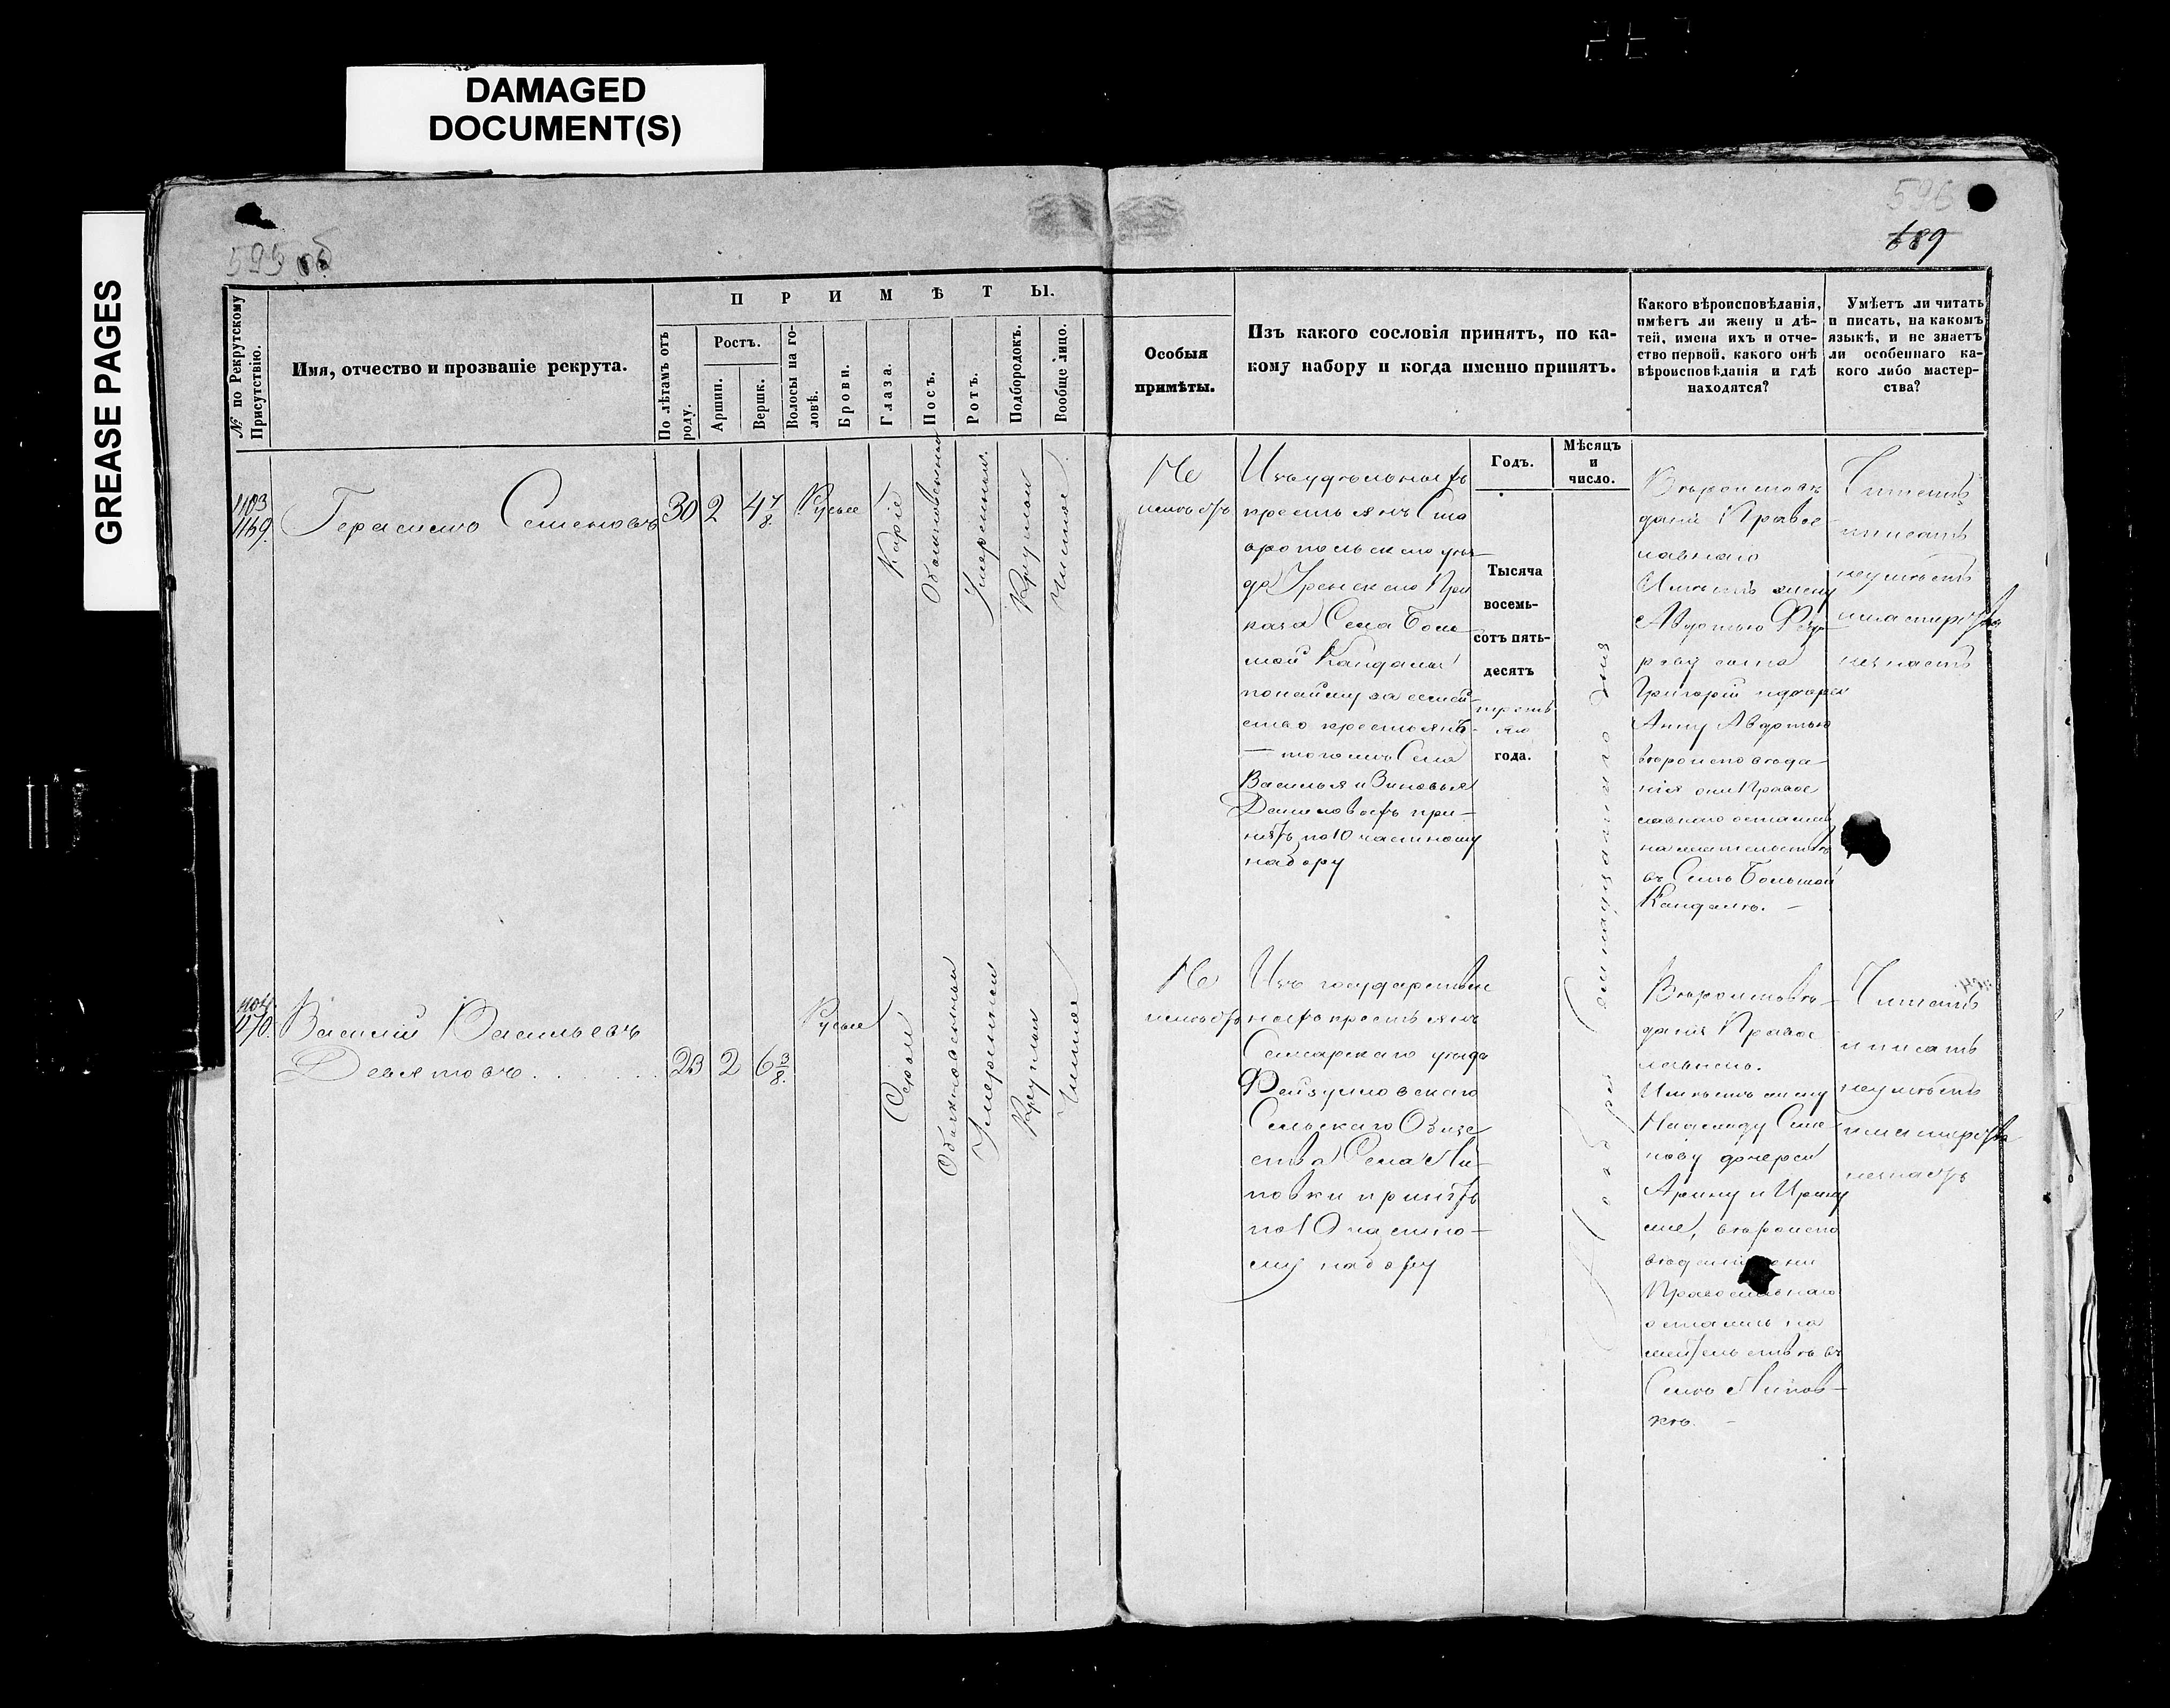 DAMAGED
DOCUMENT(S)
GREASE PAGES
595 об
596
689
№ по Рекрутскому
Присутствію.
Имя, отчество и прозваніе рекрута.
П Р И М Ѣ Т Ы.
По лѣтамъ отъ
роду.
Ростъ.
Аршин.
Вершк.
Волосы на го-
ловѣ.
Брови.
Глаза.
Носъ.
Ротъ.
Подбородокъ.
Вообще лицо.
Особыя
примѣты.
Изъ какого сословія принятъ, по ка-
кому набору и когда именно принятъ.
Годъ.
Мѣсяцъ
и
число.
Какого вѣроисповѣданія,
имѣетъ ли жену и дѣ-
тей, имена ихъ и отче-
ство первой, какого онѣ
вѣроисповѣданія и гдѣ
находятся?
Умѣетъ ли читать
и писать, на какомъ
языкѣ, и не знаетъ
ли особеннаго ка-
кого либо мастер-
ства?
1103
1169.
Герасимъ Семеновъ
30
2
4 7/8
Русые
Каріе
Обыкновенный
Умеренный.
Круглый
Чистое
Не
имѣетъ
Изъ удѣльныхъ
крестьянъ Ста
вропольского уѣз
да Уренского При
каза Села Боль
шой Кандалы
по найму за семей
ство крестьянъ
того же Села
Василья и Зиновья
Даниловыхъ при-
нятъ по 10 частному
набору
Тысяча
восемь-
сотъ пять-
десятъ
третья
го
года.
Вѣроисповѣ
данія Правос
лавнаго
Имѣетъ жену
Авдотью Федо
рову сына
Григорія и дочерей
Анну Авдотью
вѣроисповѣда
нія они Правос
лавнаго остались
на жительствѣ
въ Селѣ Большой
Кандалѣ. —
Читать
и писать
неумѣетъ
и мастерства
незнаетъ
1104
1170.
Василій Васильевъ
Девятовъ . . .
23
2
6 3/8.
Русые
Серые
Обыкновенный
Умеренный
Круглый
Чистое
Не
имѣетъ
Изъ государствен
ныхъ крестьянъ
Самарскаго уѣзда
Сельскаго Обще
ства Села Ли-
повки принятъ
по 10 частно-
му набору
Вѣроисповѣ-
данія Правос
лавнаго.
Имѣетъ жену
Семе
нову дочерей
Арину и Ирину
же, вѣроиспо
вѣданія они
Православнаго
остались на
жительствѣ въ
Селѣ Липов-
кѣ. —
Читать
и писать
неумѣетъ
и мастерства
незнаетъ